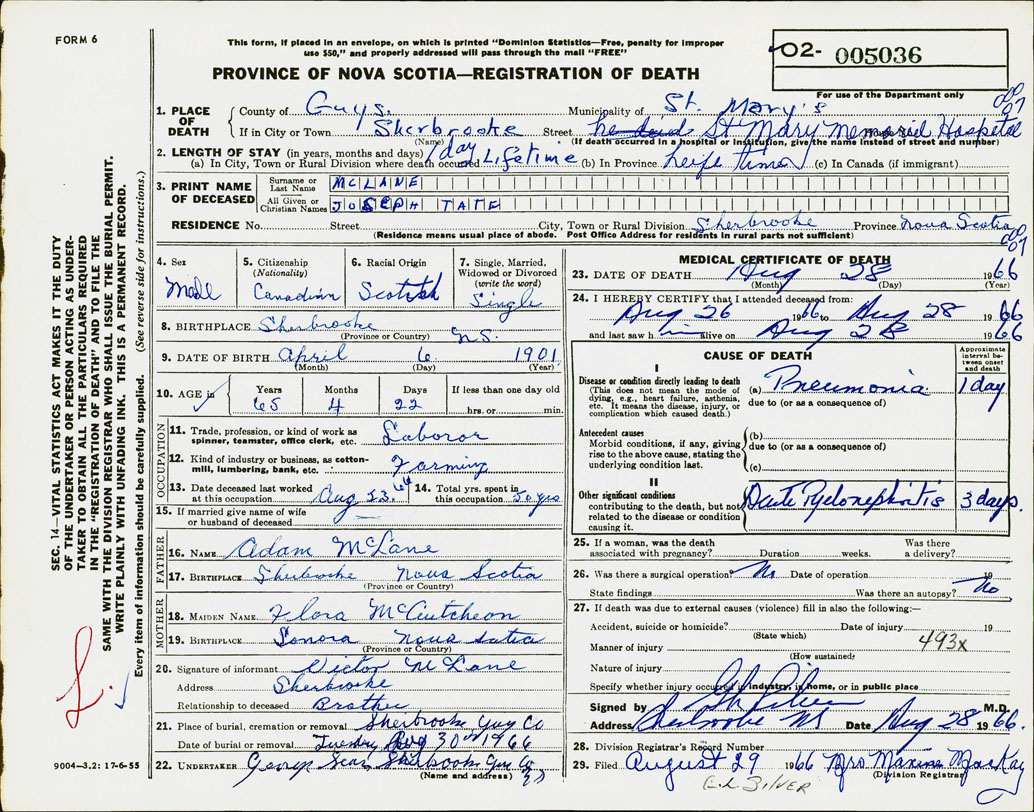 FORM 6
This form, if placed in an envelope, on which is printed "Dominion Statistics—Free, penalty for improper
use $50," and properly addressed will pass through the mail "FREE"
PROVINCE OF NOVA SCOTIA—REGISTRATION OF DEATH
02- 005036
For use of the Department only
1. PLACE OF DEATH { County of Guys. Municipality of St. Mary's
If in City or Town Sherbrooke Street St Mary Memorial Hospital
(Name) (If death occurred in a hospital or institution, give the name instead of street and number)
2. LENGTH OF STAY (in years, months and days)
(a) In City, Town or Rural Division where death occurred 1 day Lifetime (b) In Province (c) In Canada (if immigrant)
3. PRINT NAME OF DECEASED
Surname or Last Name MCLANE
All Given or Christian Names JOSEPH TATE
RESIDENCE No. Street City, Town or Rural Division Sherbrooke Province Nova Scotia
(Residence means usual place of abode. Post Office Address for residents in rural parts not sufficient)
4. Sex Male
5. Citizenship (Nationality) Canadian
6. Racial Origin Scotish
7. Single, Married, Widowed or Divorced (write the word) Single
8. BIRTHPLACE Sherbrooke N.S.
(Province or Country)
9. DATE OF BIRTH April 6 1901
(Month) (Day) (Year)
10. AGE in Years 65 Months 4 Days 22 If less than one day old hrs. or min.
OCCUPATION
11. Trade, profession, or kind of work as spinner, teamster, office clerk, etc. Laboror
12. Kind of industry or business, as cotton-mill, lumbering, bank, etc. Farming
13. Date deceased last worked at this occupation Aug 23. 66
14. Total yrs. spent in this occupation 50 yrs
15. If married give name of wife or husband of deceased —
FATHER
16. NAME Adam McLane
17. BIRTHPLACE Sherbrooke Nova Scotia
(Province or Country)
MOTHER
18. MAIDEN NAME Flora McCutcheon
19. BIRTHPLACE Sonora Nova Scotia
(Province or Country)
20. Signature of informant Victor McLane
Address Sherbrooke
Relationship to deceased Brother
21. Place of burial, cremation or removal Sherbrooke Guy Co
Date of burial or removal Tuesday Aug 30 1966
22. UNDERTAKER Sherbrooke Guy Co
(Name and address)
MEDICAL CERTIFICATE OF DEATH
23. DATE OF DEATH Aug 28 1966
(Month) (Day) (Year)
24. I HEREBY CERTIFY that I attended deceased from:
Aug 26 1966 to Aug 28 1966
and last saw him alive on Aug 28 1966
CAUSE OF DEATH
Approximate interval between onset and death
I
Disease or condition directly leading to death
(This does not mean the mode of dying, e.g., heart failure, asthenia, etc. It means the disease, injury, or complication which caused death.)
(a) Pneumonia 1 day
due to (or as a consequence of)
Antecedent causes
Morbid conditions, if any, giving rise to the above cause, stating the underlying condition last.
(b)
due to (or as a consequence of)
(c)
II
Other significant conditions
contributing to the death, but not related to the disease or condition causing it.
Acute Pyelonephritis 3 days.
25. If a woman, was the death associated with pregnancy? Duration weeks. Was there a delivery?
26. Was there a surgical operation? No Date of operation 19
State findings Was there an autopsy? No
27. If death was due to external causes (violence) fill in also the following:—
Accident, suicide or homicide? Date of injury 19
(State which)
Manner of injury 493x
(How sustained)
Nature of injury
Specify whether injury occurred in industry, in home, or in public place
Signed by M.D.
Address Sherbrooke NS Date Aug 28 1966.
28. Division Registrar's Record Number
29. Filed August 29 1966 Mrs Maxine MacKay
(Division Registrar)
SILVER
SEC. 14—VITAL STATISTICS ACT MAKES IT THE DUTY
OF THE UNDERTAKER OR PERSON ACTING AS UNDER-
TAKER TO OBTAIN ALL THE PARTICULARS REQUIRED
IN THE "REGISTRATION OF DEATH" AND TO FILE THE
SAME WITH THE DIVISION REGISTRAR WHO SHALL ISSUE THE BURIAL PERMIT.
WRITE PLAINLY WITH UNFADING INK. THIS IS A PERMANENT RECORD.
Every item of information should be carefully supplied. (See reverse side for instructions.)
9004-3.2: 17-6-55